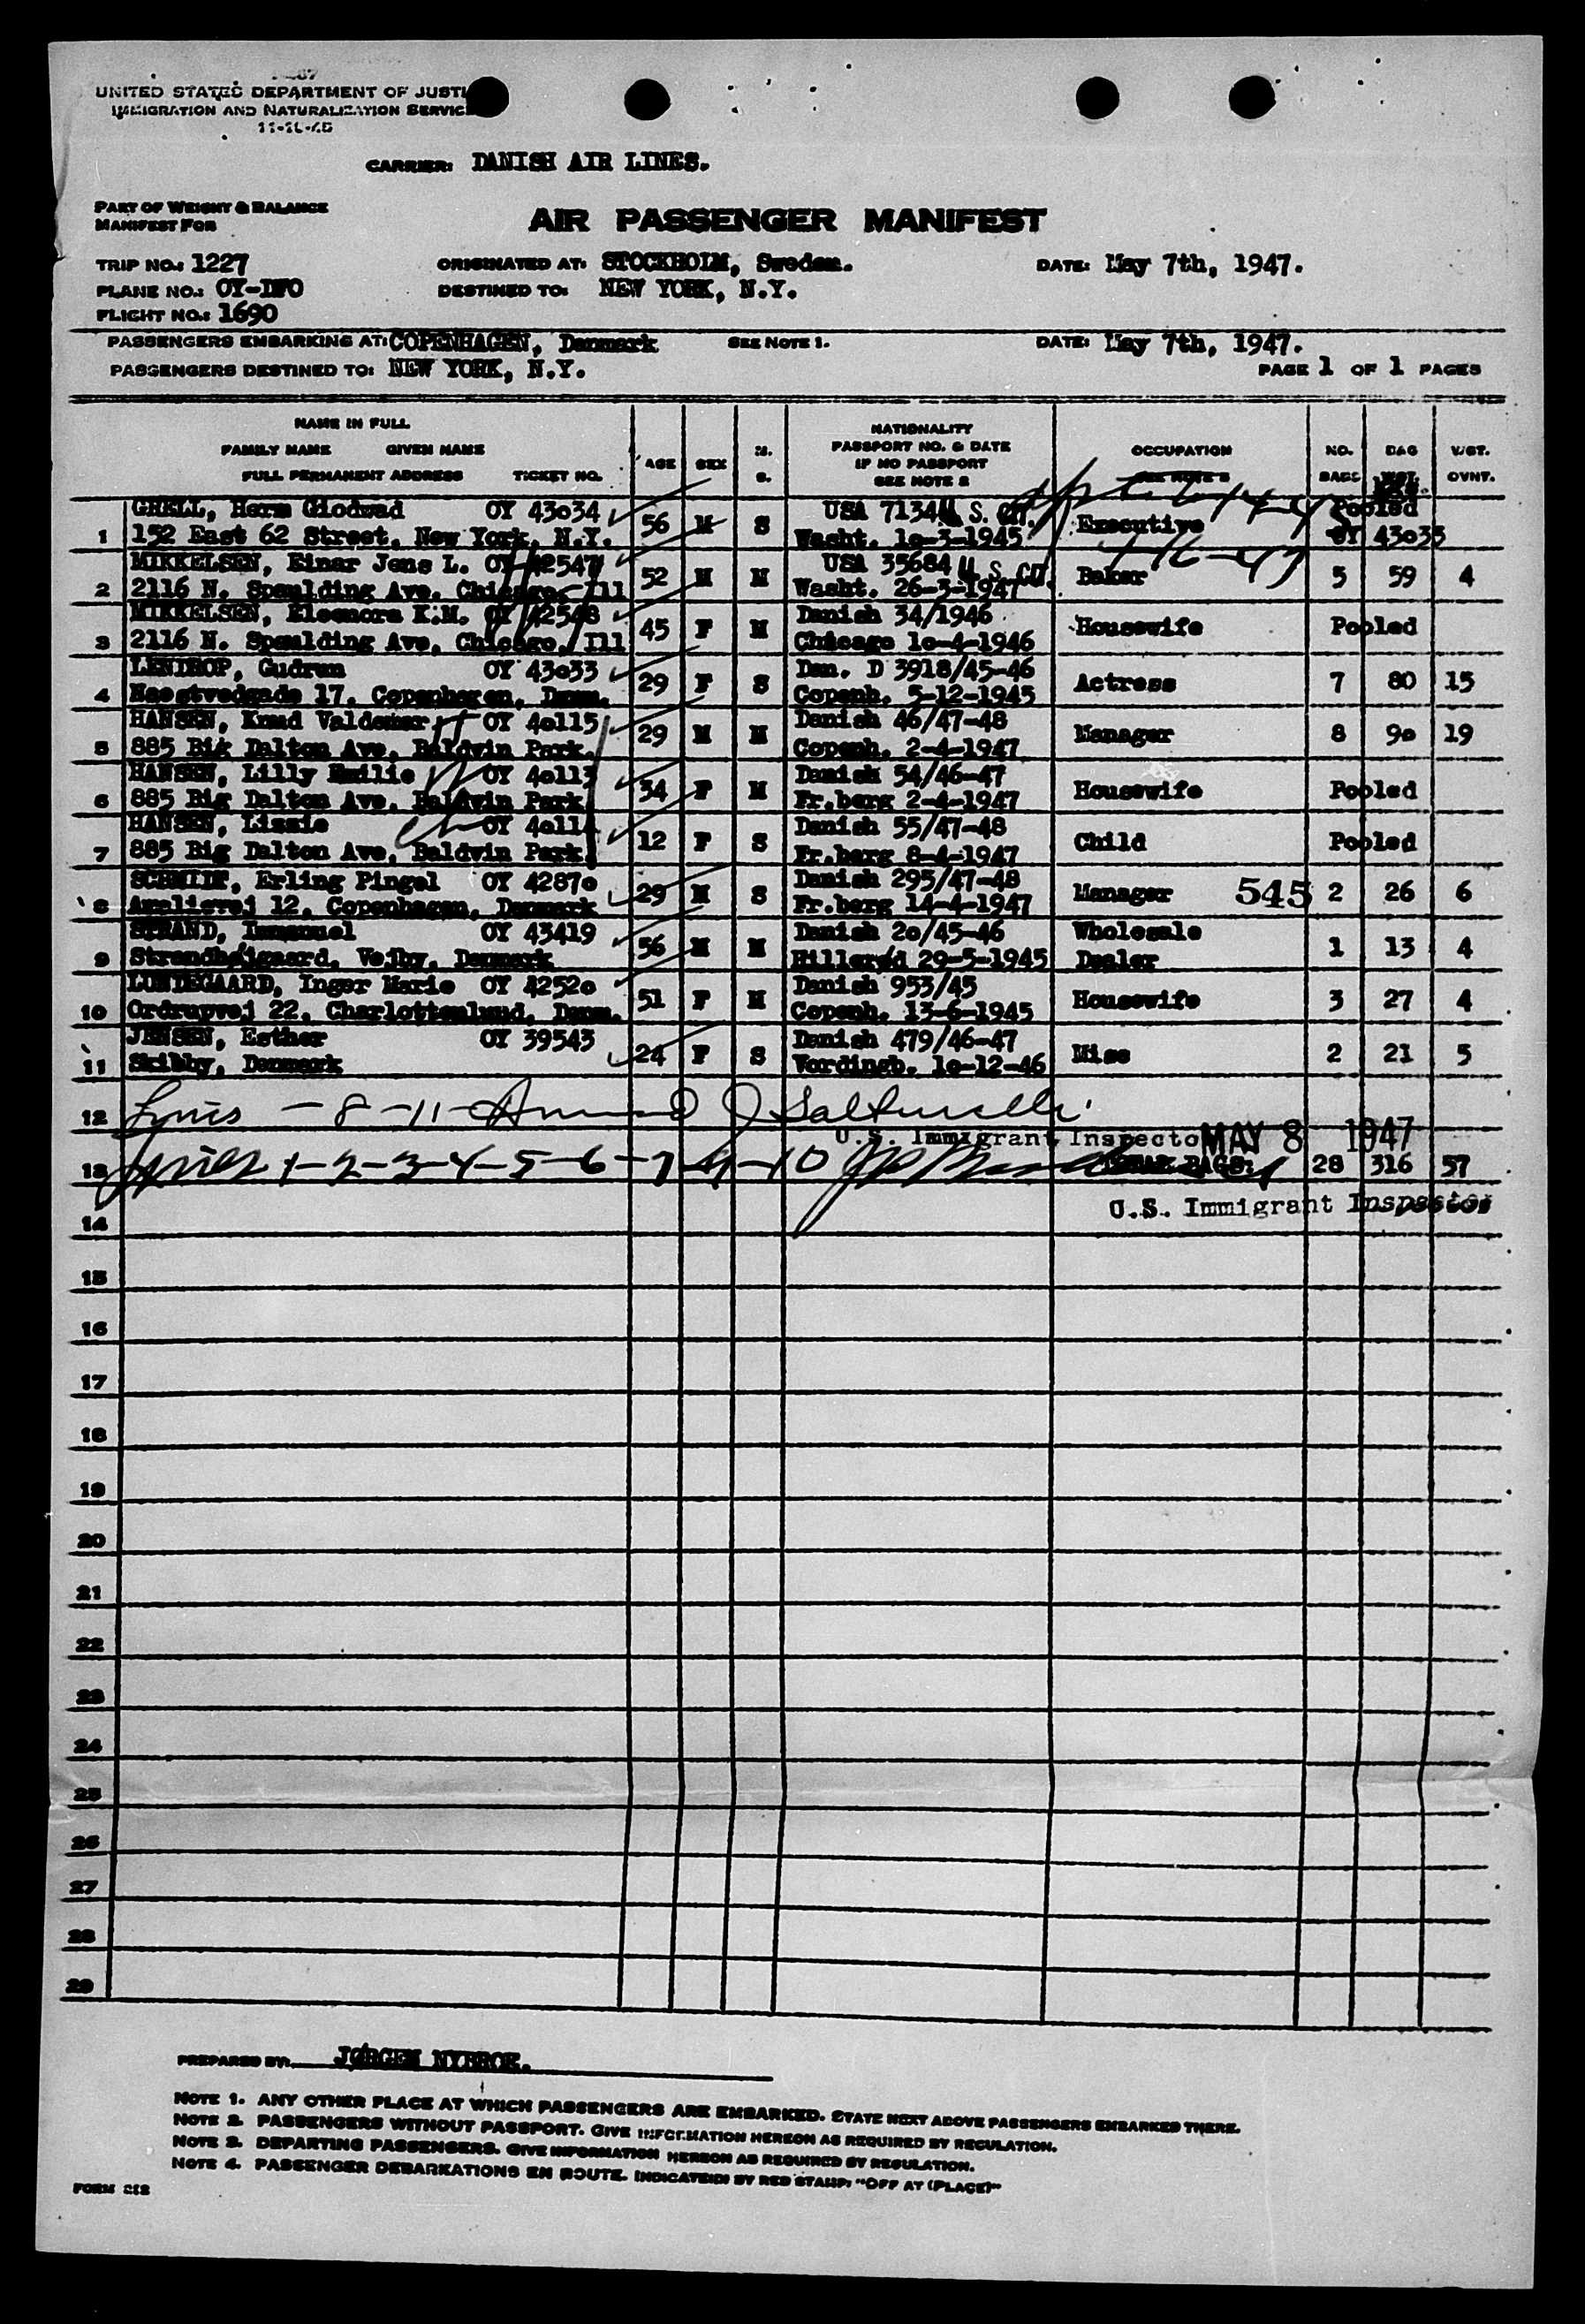 UNITED STATES DEPARTMENT OF JUSTI
IMMIGRATION AND NATURALIZATION SERVIC
11-1-45
CARRIER: DANISH AIR LINES.
PART OF WEIGHT & BALANCE
MANIFEST FOR
AIR PASSENGER MANIFEST
TRIP NO.: 1227 ORIGINATED AT: STOCKHOLM, Sweden. DATE: May 7th, 1947.
PLANE NO.: OY-DFO DESTINED TO: NEW YORK, N.Y.
FLIGHT NO.: 1690
PASSENGERS EMBARKING AT: COPENHAGEN, Denmark SEE NOTE 1. DATE: May 7th, 1947.
PASSENGERS DESTINED TO: NEW YORK, N.Y. PAGE 1 OF 1 PAGES
NAME IN FULL
FAMILY NAME GIVEN NAME
FULL PERMANENT ADDRESS TICKET NO. AGE SEX M. S. NATIONALITY PASSPORT NO. & DATE IF NO PASSPORT SEE NOTE 2 OCCUPATION SEE NOTE 3 NO. BAGS BAG WGT. WGT. OVNT.
GHELL, Herm OY 43o34 USA 7134 U.S. Cit. Pooled
1 152 East 62 Street, New York, N.Y. 56 M S Washt. 1o-3-1945 Executive OY 43o33
MIKKELSEN, Einar Jens L. OY 42547 USA 35684 U.S. Cit.
2 2116 N. Spaulding Ave, Chicago, Ill 52 M M Washt. 26-3-1947 Baker 5 59 4
MIKKELSEN, Eleonora K.M. OY 42548 Danish 34/1946
3 2116 N. Spaulding Ave, Chicago, Ill 45 F M Chicago 1o-4-1946 Housewife Pooled
LENDROP, Gudrun OY 43o33 Dan. D 3918/45-46
4 Naestvedgade 17, Copenhagen, Denm. 29 F S Copenh. 5-12-1945 Actress 7 80 15
HANSEN, Knud Valdemar OY 4o115 Danish 46/47-48
5 885 Big Dalton Ave, Baldvin Park, 29 M M Copenh. 2-4-1947 Manager 8 9o 19
HANSEN, Lilly Emilie OY 4o113 Danish 54/46-47
6 885 Big Dalton Ave, Baldvin Park 34 F M Fr.berg 2-4-1947 Housewife Pooled
HANSEN, Lizzie OY 4o114 Danish 55/47-48
7 885 Big Dalton Ave, Baldvin Park 12 F S Fr.berg 8-4-1947 Child Pooled
SCHMIDT, Erling Pingel OY 4287o Danish 295/47-48
8 Amelievej 12, Copenhagen, Denmark 29 M S Fr.berg 14-4-1947 Manager 545 2 26 6
STRAND, Immanuel OY 43419 Danish 2o/45-46 Wholesale
9 Strandhøjgaard, Vejby, Denmark 56 M M Hillerød 29-5-1945 Dealer 1 13 4
LUNDEGAARD, Inger Marie OY 4252o Danish 953/45
10 Ordrupvej 22, Charlottenlund, Denm. 51 F M Copenh. 13-6-1945 Housewife 3 27 4
JENSEN, Esther OY 39543 Danish 479/46-47
11 Skibby, Denmark 24 F S Vordingb. 1o-12-46 Miss 2 21 5
12 - 8 - 11 -
U.S. Immigrant Inspector MAY 8 1947
13 1-2-3-4-5-6-7-9-10 TOTAL BAGS: 28 316 57
14 U.S. Immigrant Inspector
15
16
17
18
19
20
21
22
23
24
25
26
27
28
29
PREPARED BY: JØRGEN NYBROE.
NOTE 1. ANY OTHER PLACE AT WHICH PASSENGERS ARE EMBARKED. STATE NEXT ABOVE PASSENGERS EMBARKED THERE.
NOTE 2. PASSENGERS WITHOUT PASSPORT. GIVE INFORMATION HEREON AS REQUIRED BY REGULATION.
NOTE 3. DEPARTING PASSENGERS. GIVE INFORMATION HEREON AS REQUIRED BY REGULATION.
NOTE 4. PASSENGER DEBARKATIONS EN ROUTE. INDICATE BY RED STAMP: "OFF AT (PLACE)"
FORM 212